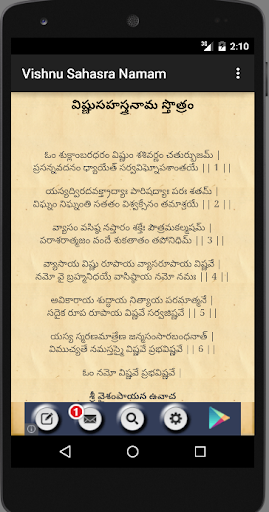 3G 2:10
Vishnu Sahasra Namam
విష్ణుసహస్త్రనామ స్తోత్రం
ఓం శుక్లాంబరధరం విష్ణుం శశివర్ణం చతుర్భుజమ్ |
ప్రసన్నవదనం ధ్యాయేత్ సర్వవిఘ్నోపశాంతయే || 1 ||
యస్యద్విరదవక్త్రాద్యాః పారిషద్యాః పరః శతమ్ |
విఘ్నం నిఘ్నంతి సతతం విశ్వక్సేనం తమాశ్రయే || 2 ||
వ్యాసం వసిష్ఠ నప్తారం శక్తేః పౌత్రమకల్మషమ్ |
పరాశరాత్మజం వందే శుకతాతం తపోనిధిమ్ || 3 ||
వ్యాసాయ విష్ణు రూపాయ వ్యాసరూపాయ విష్ణవే |
నమో వై బ్రహ్మనిధయే వాసిష్ఠాయ నమో నమః || 4 ||
అవికారాయ శుద్ధాయ నిత్యాయ పరమాత్మనే |
సదైక రూప రూపాయ విష్ణవే సర్వజిష్ణవే || 5 ||
యస్య స్మరణమాత్రేణ జన్మసంసారబంధనాత్ |
విముచ్యతే నమస్తస్మై విష్ణవే ప్రభవిష్ణవే || 6 ||
ఓం నమో విష్ణవే ప్రభవిష్ణవే |
శ్రీ వైశంపాయన ఉవాచ
1